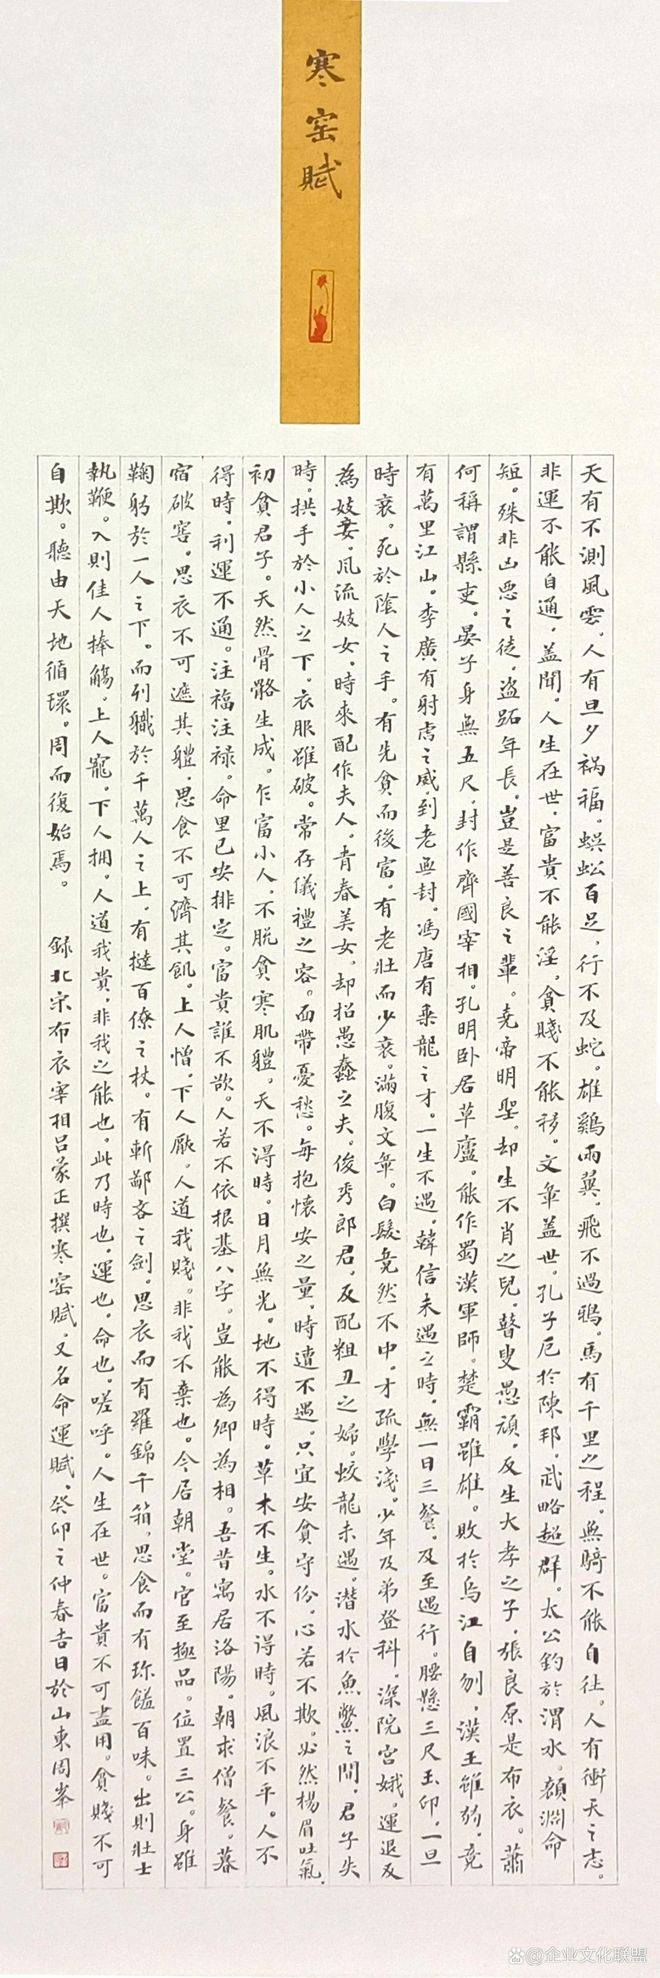 寒窑賦
天有不測風雲。人有旦夕禍福。蜈蚣百足，行不及蛇。雄鷄兩翼，飛不過鴉。馬有千里之程。無騎不能自往。人有衝天之志。
非運不能自通，盖聞。人生在世，富貴不能淫，貧賤不能移。文章盖世。孔子厄扵陳邦，武略超群。太公釣扵渭水。顔淵命
短。殊非凶惡之徒，盗跖年長。豈是善良之輩。堯帝明聖。却生不肖之兒。瞽叟愚頑，反生大孝之子，張良原是布衣。蕭
何稱謂縣吏。晏子身無五尺，封作齊國宰相。孔明卧居草廬。能作蜀漢軍師。楚霸雖雄。敗扵烏江自刎，漢王雖弱，竟
有萬里江山。李廣有射虎之威，到老無封。馮唐有乘龍之才。一生不遇。韓信未遇之時，無一日三餐，及至遇行。腰懸三尺玉印，一旦
時衰。死扵陰人之手。有先貧而後富。有老壯而少衰。滿腹文章。白髮竟然不中，才疏學淺。少年及弟登科，深院宮娥。運退反
為妓妾，風流妓女，時來配作夫人。青春美女，却招愚蠢之夫。俊秀郎君，反配粗丑之婦。蛟龍未遇。潜水扵魚鱉之間，君子失
時，拱手扵小人之下。衣服雖破。常存儀禮之容。面帶憂愁。每抱懷安之量，時遭不遇。只宜安貧守份，心若不欺。必然楊眉吐氣，
初貧君子。天然骨骼生成。乍富小人，不脱貧寒肌體，天不得時。日月無光。地不得時。草木不生。水不得時。風浪不平。人不
得時，利運不通。注福注禄。命里已安排定。富貴誰不欲。人若不依根基八字。豈能為卿為相。吾昔寓居洛陽。朝求僧餐。暮
宿破窑。思衣不可遮其體，思食不可濟其飢。上人憎，下人厭。人道我賤。非我不棄也。今居朝堂。官至極品。位置三公。身雖
鞠躬扵一人之下。而列職扵千萬人之上。有撻百僚之杖。有斬鄙吝之劍。思衣而有羅錦千箱。思食而有珍饈百味。出則壯士
執鞭。入則佳人捧觴。上人寵，下人拥。人道我貴，非我之能也。此乃時也，運也，命也。嗟呼。人生在世。富貴不可盡用。貧賤不可
自欺。聽由天地循環。周而復始焉。 録北宋布衣宰相吕蒙正撰寒窑賦，又名命運賦，癸卯之仲春吉日扵山東周峯
@企业文化联盟